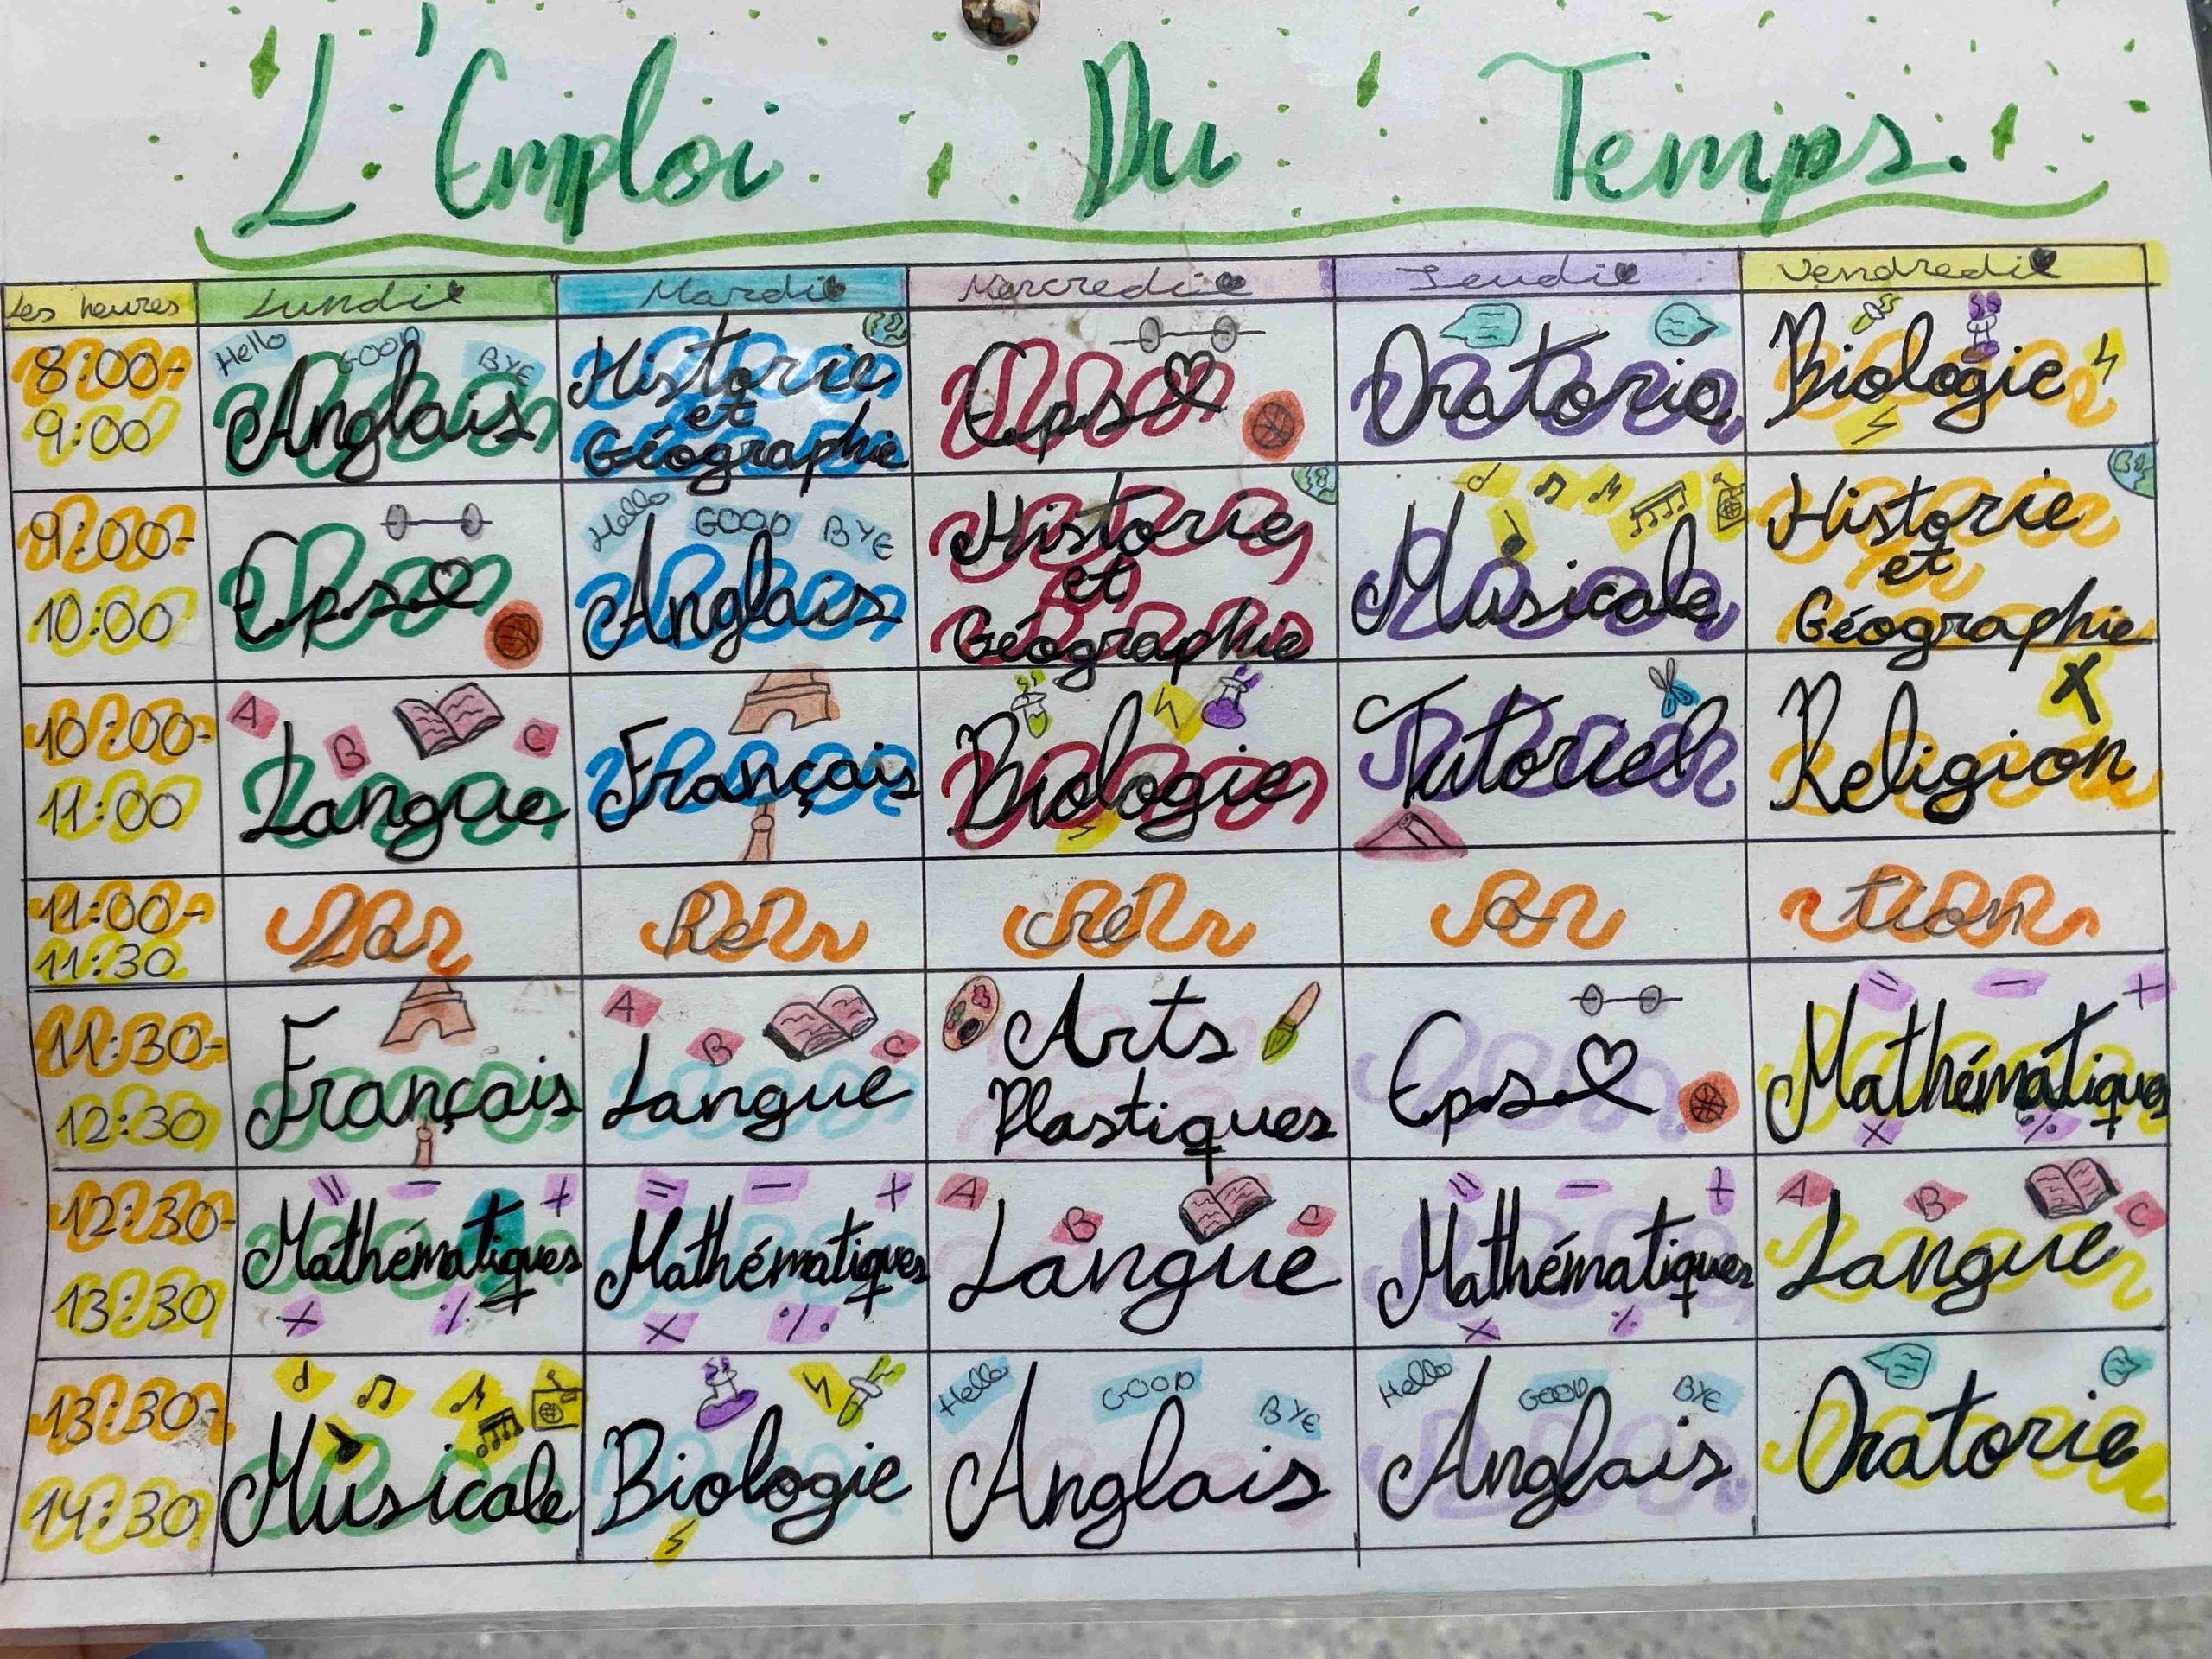 L'Emploi Du Temps.
Les heures Lundi Mardi Mercredi Jeudi Vendredi
8:00- 9:00
Hello GOOD BYE
Anglais
Historie
et
Géographie
Eps
Oratorio
Biologie
9:00- 10:00
Eps
Hello GOOD BYE
Anglais
Historie
et
Géographie
Musicale
Historie
et
Géographie
10:00- 11:00
A B C
Langue
Français
Biologie
Tutoriel
Religion
11:00- 11:30
La Ré cré a tion
11:30- 12:30
Français
A B C
Langue
Arts
Plastiques
Eps
= - +
Mathématiques
x %
12:30- 13:30
= - +
Mathématiques
x %
= - +
Mathématiques
x %
A B C
Langue
= - +
Mathématiques
x %
A B C
Langue
13:30- 14:30
Musicale
Biologie
Hello GOOD BYE
Anglais
Hello GOOD BYE
Anglais
Oratorie